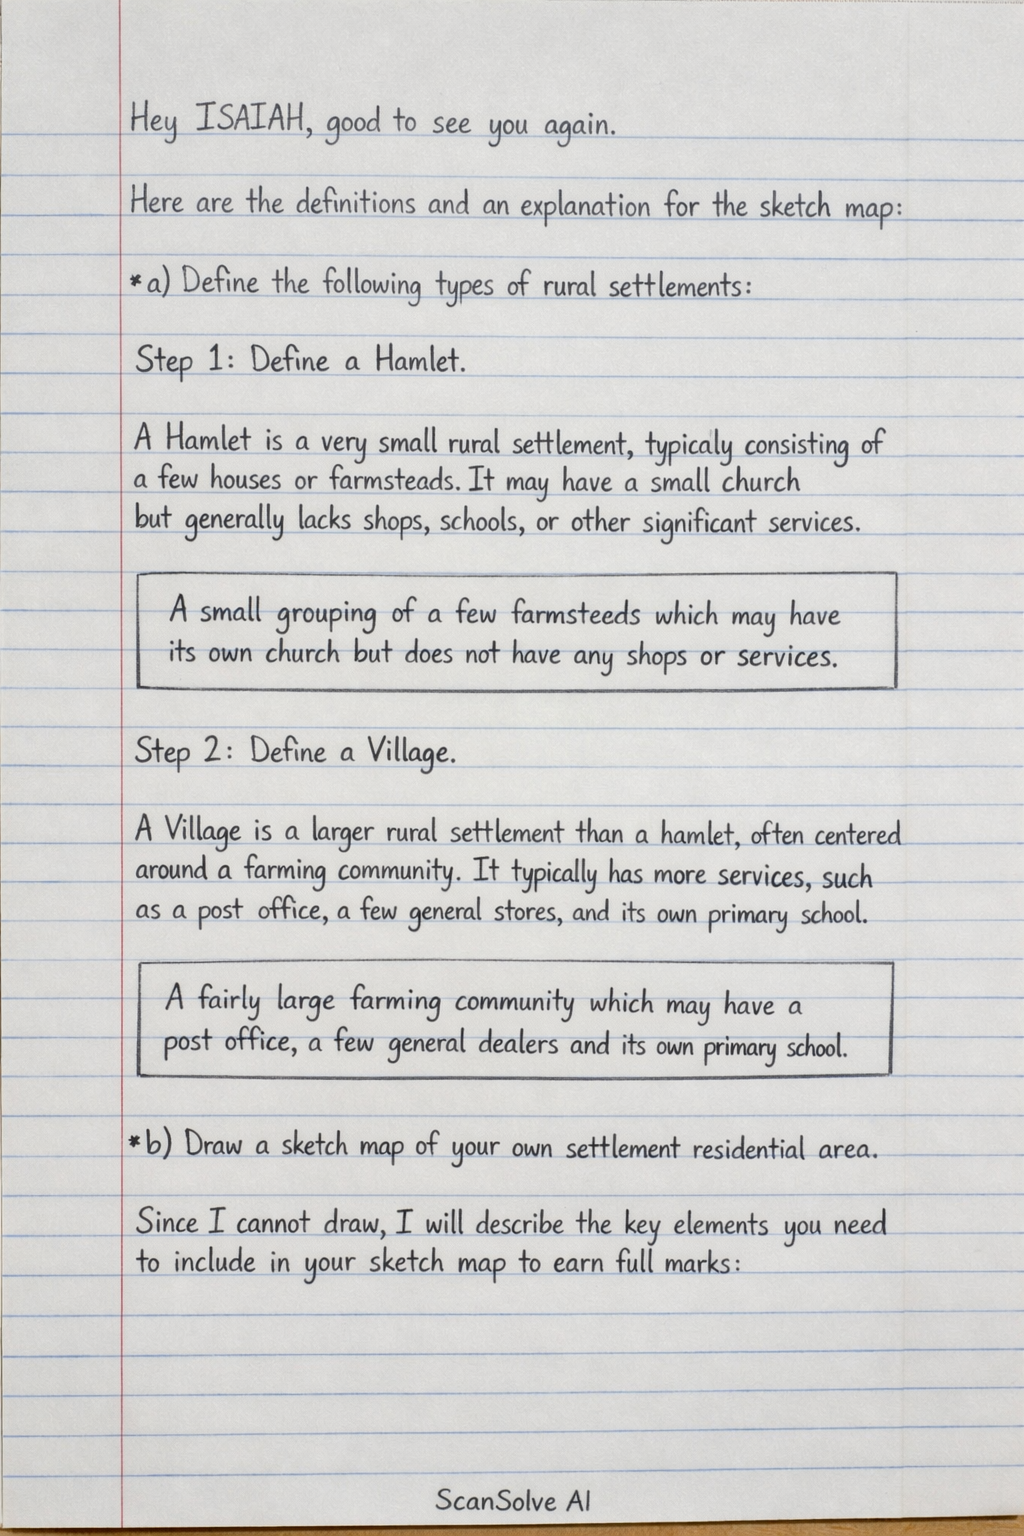 Hey ISAIAH, good to see you again.
Here are the definitions and an explanation for the sketch map:
*a) Define the following types of rural settlements:
Step 1: Define a Hamlet.
A Hamlet is a very small rural settlement, typicaly consisting of
a few houses or farmsteads. It may have a small church
but generally lacks shops, schools, or other significant services.
A small grouping of a few farmsteeds which may have
its own church but does not have any shops or services.
Step 2: Define a Village.
A Village is a larger rural settlement than a hamlet, often centered
around a farming community. It typically has more services, such
as a post office, a few general stores, and its own primary school.
A fairly large farming community which may have a
post office, a few general dealers and its own primary school.
*b) Draw a sketch map of your own settlement residential area.
Since I cannot draw, I will describe the key elements you need
to include in your sketch map to earn full marks:
ScanSolve AI